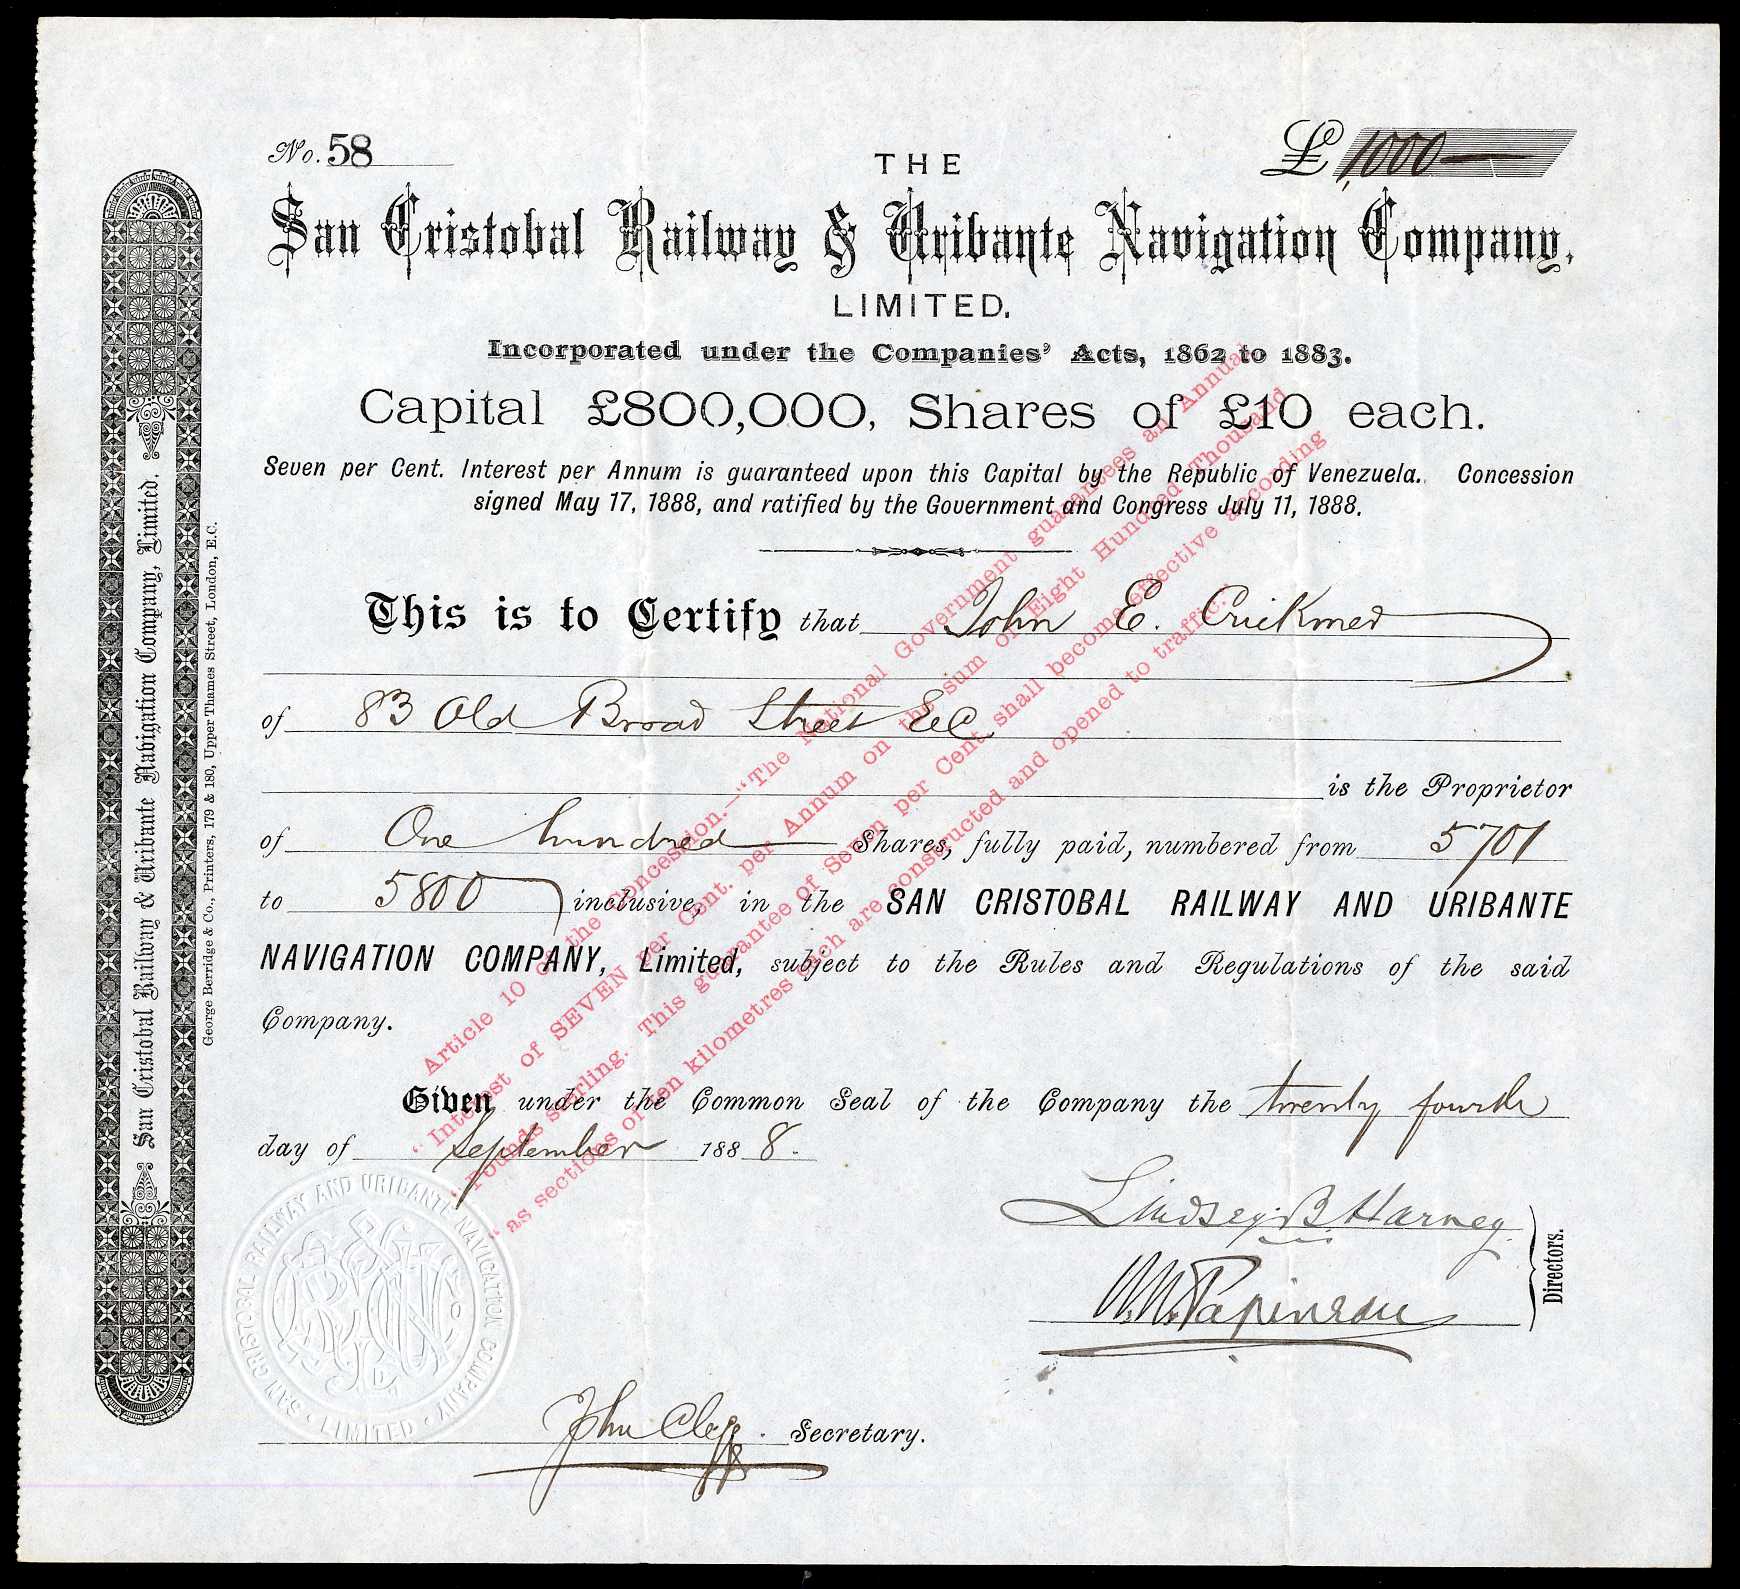 No. 58
£ 1,000
THE
San Cristobal Railway & Uribante Navigation Company,
LIMITED.
Incorporated under the Companies' Acts, 1862 to 1883.
Capital £800,000, Shares of £10 each.
Seven per Cent. Interest per Annum is guaranteed upon this Capital by the Republic of Venezuela. Concession
signed May 17, 1888, and ratified by the Government and Congress July 11, 1888.
This is to Certify that John E. Crickmer
of 83 Old Broad Street EC
is the Proprietor
of One hundred Shares, fully paid, numbered from 5701
to 5800 inclusive, in the SAN CRISTOBAL RAILWAY AND URIBANTE
NAVIGATION COMPANY, Limited, subject to the Rules and Regulations of the said
Company.
Given under the Common Seal of the Company the twenty fourth
day of September 1888.
Lindsey B Harney
W.M. Papineau
Directors.
John Clegg. Secretary.
Article 10 of the Concession.—"The National Government guarantees an Annual
"Interest of SEVEN per Cent. per Annum on the sum of Eight Hundred Thousand
"Pounds sterling. This guarantee of Seven per Cent. shall become effective according
"as sections of ten kilometres each are constructed and opened to traffic."
San Cristobal Railway & Uribante Navigation Company, Limited.
George Berridge & Co., Printers, 179 & 180, Upper Thames Street, London, E.C.
SAN CRISTOBAL RAILWAY AND URIBANTE NAVIGATION COMPANY
· LIMITED ·